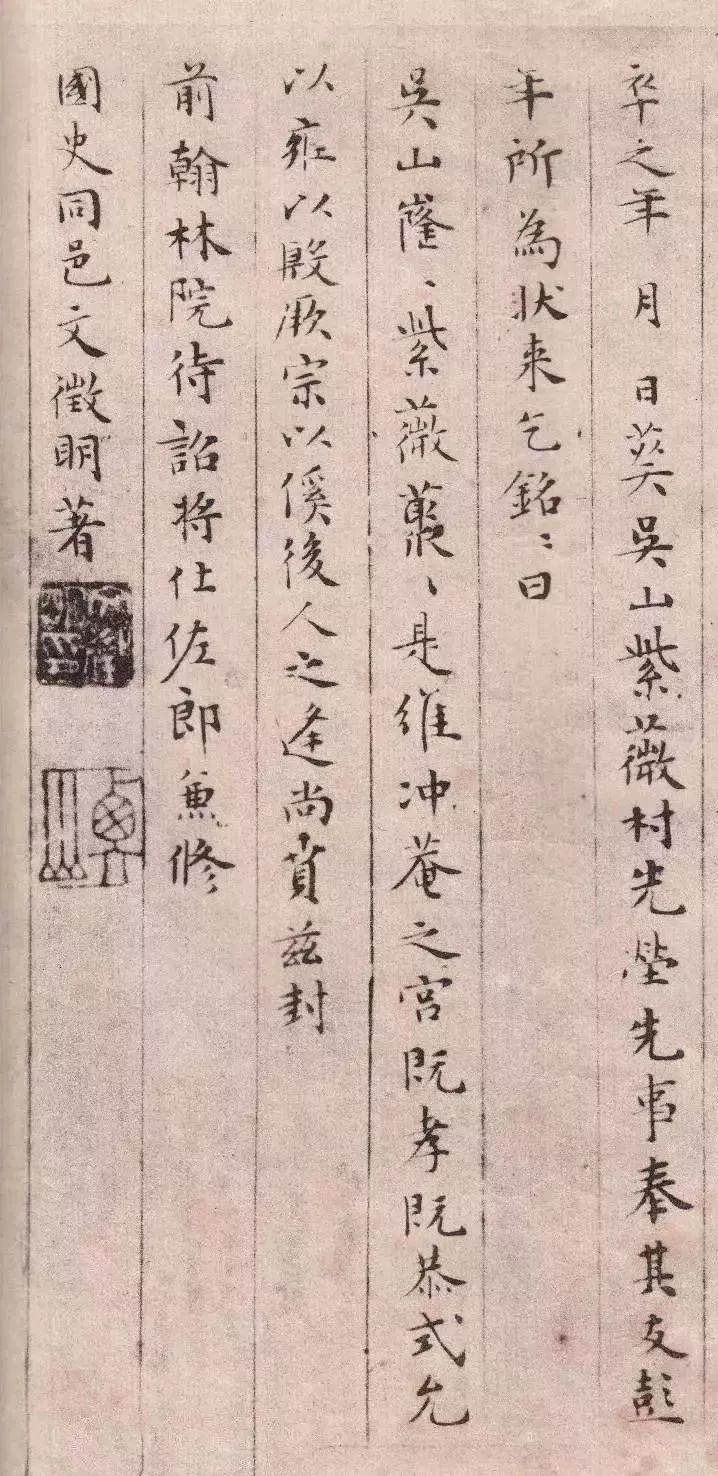 卒之年 月 日葬吳山紫薇村先塋先事奉其友彭
年所為狀来乞銘〻曰
吳山窿〻紫薇叢〻是維冲菴之宮既孝既恭式允
以雍以殿厥宗以傒後人之逢尚賁兹封
前翰林院待詔将仕佐郎兼修
國史同邑文徵明著